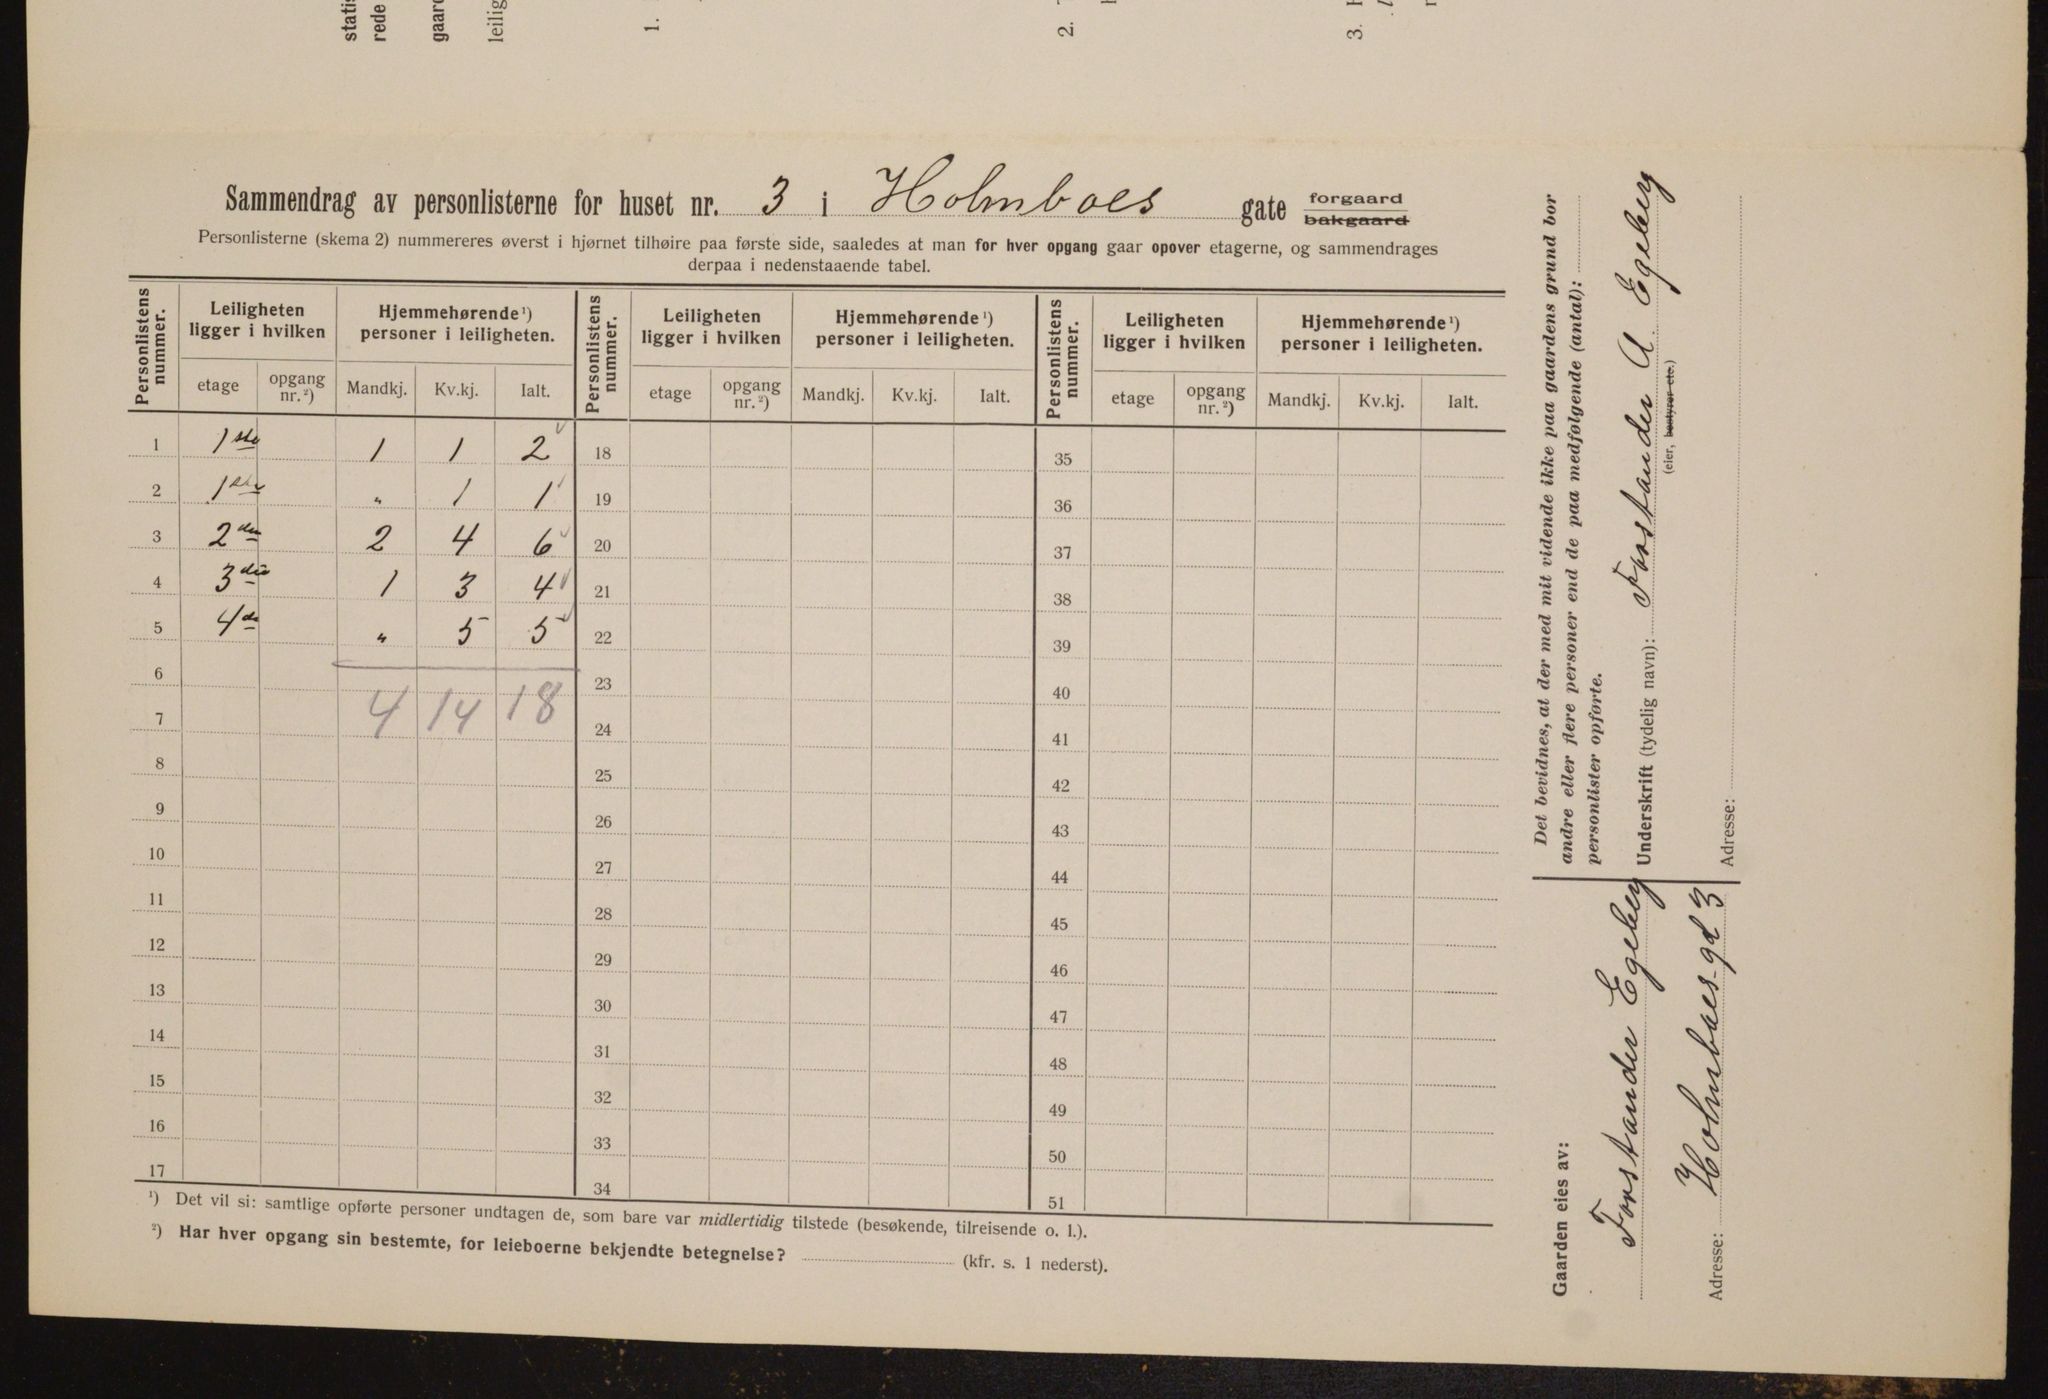 statis
rede
gaard
leilig
1.
2.
3.
Sammendrag av personlisterne for huset nr. 3 i Holmboes gate forgaard bakgaard
Personlisterne (skema 2) nummereres øverst i hjørnet tilhøire paa første side, saaledes at man for hver opgang gaar opover etagerne, og sammendrages
derpaa i nedenstaaende tabel.
Personlistens nummer. Leiligheten ligger i hvilken Hjemmehørende ¹) personer i leiligheten. Personlistens nummer. Leiligheten ligger i hvilken Hjemmehørende ¹) personer i leiligheten. Personlistens nummer. Leiligheten ligger i hvilken Hjemmehørende ¹) personer i leiligheten.
etage opgang nr. ²) Mandkj. Kv.kj. Ialt. etage opgang nr. ²) Mandkj. Kv.kj. Ialt. etage opgang nr. ²) Mandkj. Kv.kj. Ialt.
1 1ste 1 1 2 18 35
2 1ste " 1 1 19 36
3 2den 2 4 6 20 37
4 3die 1 3 4 21 38
5 4de " 5 5 22 39
6 23 40
7 4 14 18 24 41
8 25 42
9 26 43
10 27 44
11 28 45
12 29 46
13 30 47
14 31 48
15 32 49
16 33 50
17 34 51
¹) Det vil si: samtlige opførte personer undtagen de, som bare var midlertidig tilstede (besøkende, tilreisende o. l.).
²) Har hver opgang sin bestemte, for leieboerne bekjendte betegnelse? (kfr. s. 1 nederst).
Det bevidnes, at der med mit vidende ikke paa gaardens grund bor
andre eller flere personer end de paa medfølgende (antal):
personlister opførte.
Underskrift (tydelig navn): Forstander A Egeberg
(eier, bestyrer etc.)
Adresse:
Gaarden eies av:
Forstander Egeberg
Adresse: Holmboes gd 3